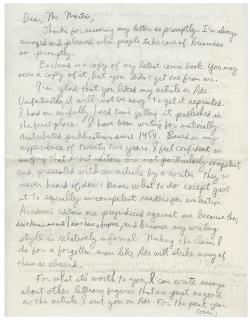 Dear Mr. Martin,
Thanks for answering my letter so promptly. I'm always
amazed and pleased when people take care of business
so promptly.
Enclosed is a copy of my latest comic book. You may
own a copy of it, but you didn't get one from me.
I'm glad that you liked my article on Ade.
Unfortunately it will not be easy to get it reprinted.
I had an awfully hard time getting it published in
the first place. I have been writing for nationally
distributed publications since 1959. Based on my
experience of twenty two years I feel confident in
saying that most editors are not particularly competent
and presented with an article by a writer they've
never heard of, don't know what to do except give
it to equally incompetent readers for evaluation.
Academic editors are prejudiced against me because they
don't know me and I don't have a degree, and because my writing
style is relatively informal. Making the claims I
do for a forgotten man like Ade will strike many of
them as absurd.
For what it's worth to you, I can write essays
about other literary figures that are just as good
as the article I sent you on Ade. For the past year
(over)